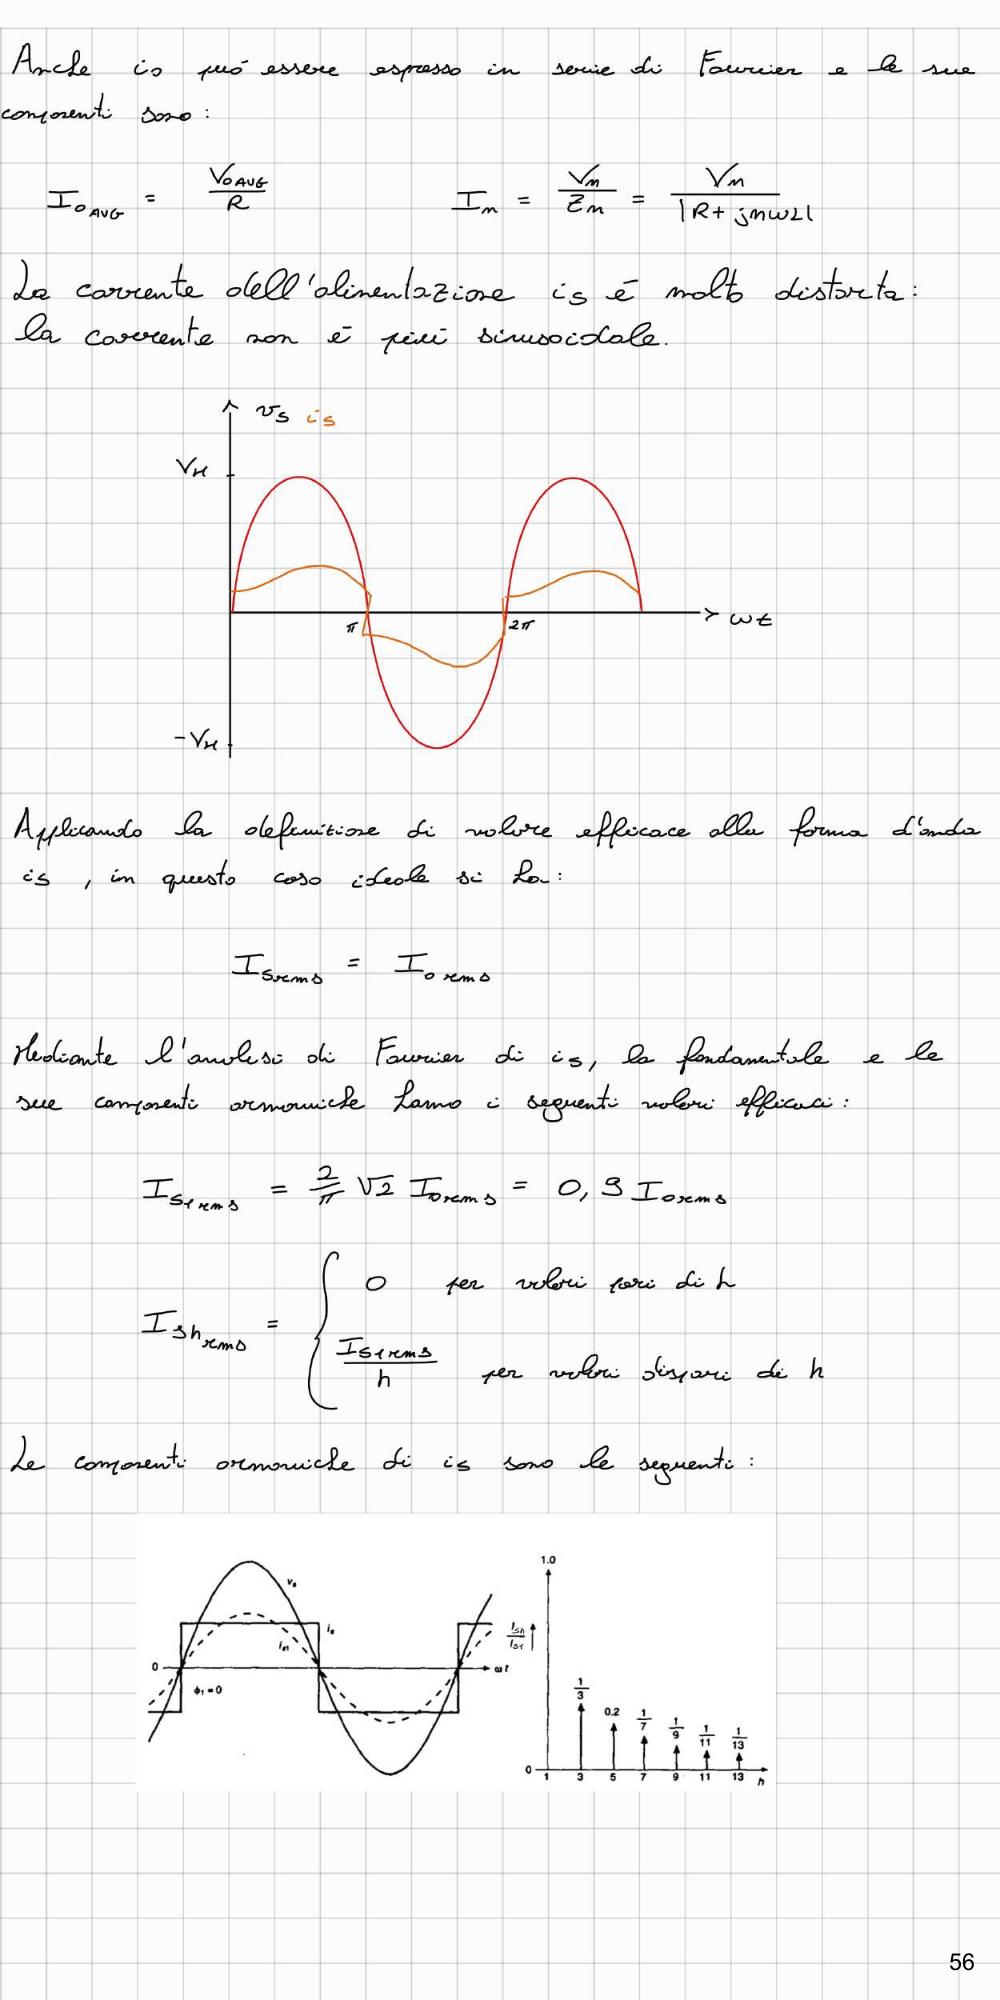 Anche io può essere espresso in serie di Fourier e le sue
componenti sono:
I₀AVG = V₀AVG / R    Iₙ = Vₙ / Zₙ = Vₙ / |R + jnωL|
La corrente dell'alimentazione is é molto distorta:
la corrente non é più sinusoidale.
vs is
VM
π 2π ωt
-VM
Applicando la definizione di valore efficace alla forma d'onda
is, in questo caso ideale si ha:
Isrms = Iorms
Mediante l'analisi di Fourier di is, la fondamentale e le
sue componenti armoniche hanno i seguenti valori efficaci:
Is1rms = 2/π √2 Iorms = 0,9 Iorms
Ishrms = { 0 per valori pari di h
Is1rms / h per valori dispari di h
Le componenti armoniche di is sono le seguenti:
1.0
vs
is
is1
Ish / Is1
0 ωt
ϕ1=0
1/3 0.2 1/7 1/9 1/11 1/13
0 1 3 5 7 9 11 13 h
56